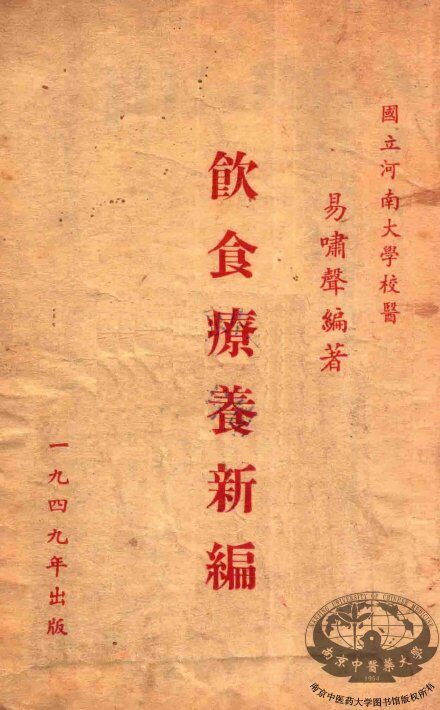 國立河南大學校醫
易嘯聲編著
飲食療養新編
一九四九年出版
NANJING UNIVERSITY OF CHINESE MEDICINE
南京中醫藥大學
1954
南京中医药大学图书馆版权所有